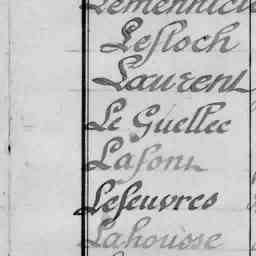 Lefloch
Laurent
Le Guellec
Lafont
Lefeuvres
Lahousse